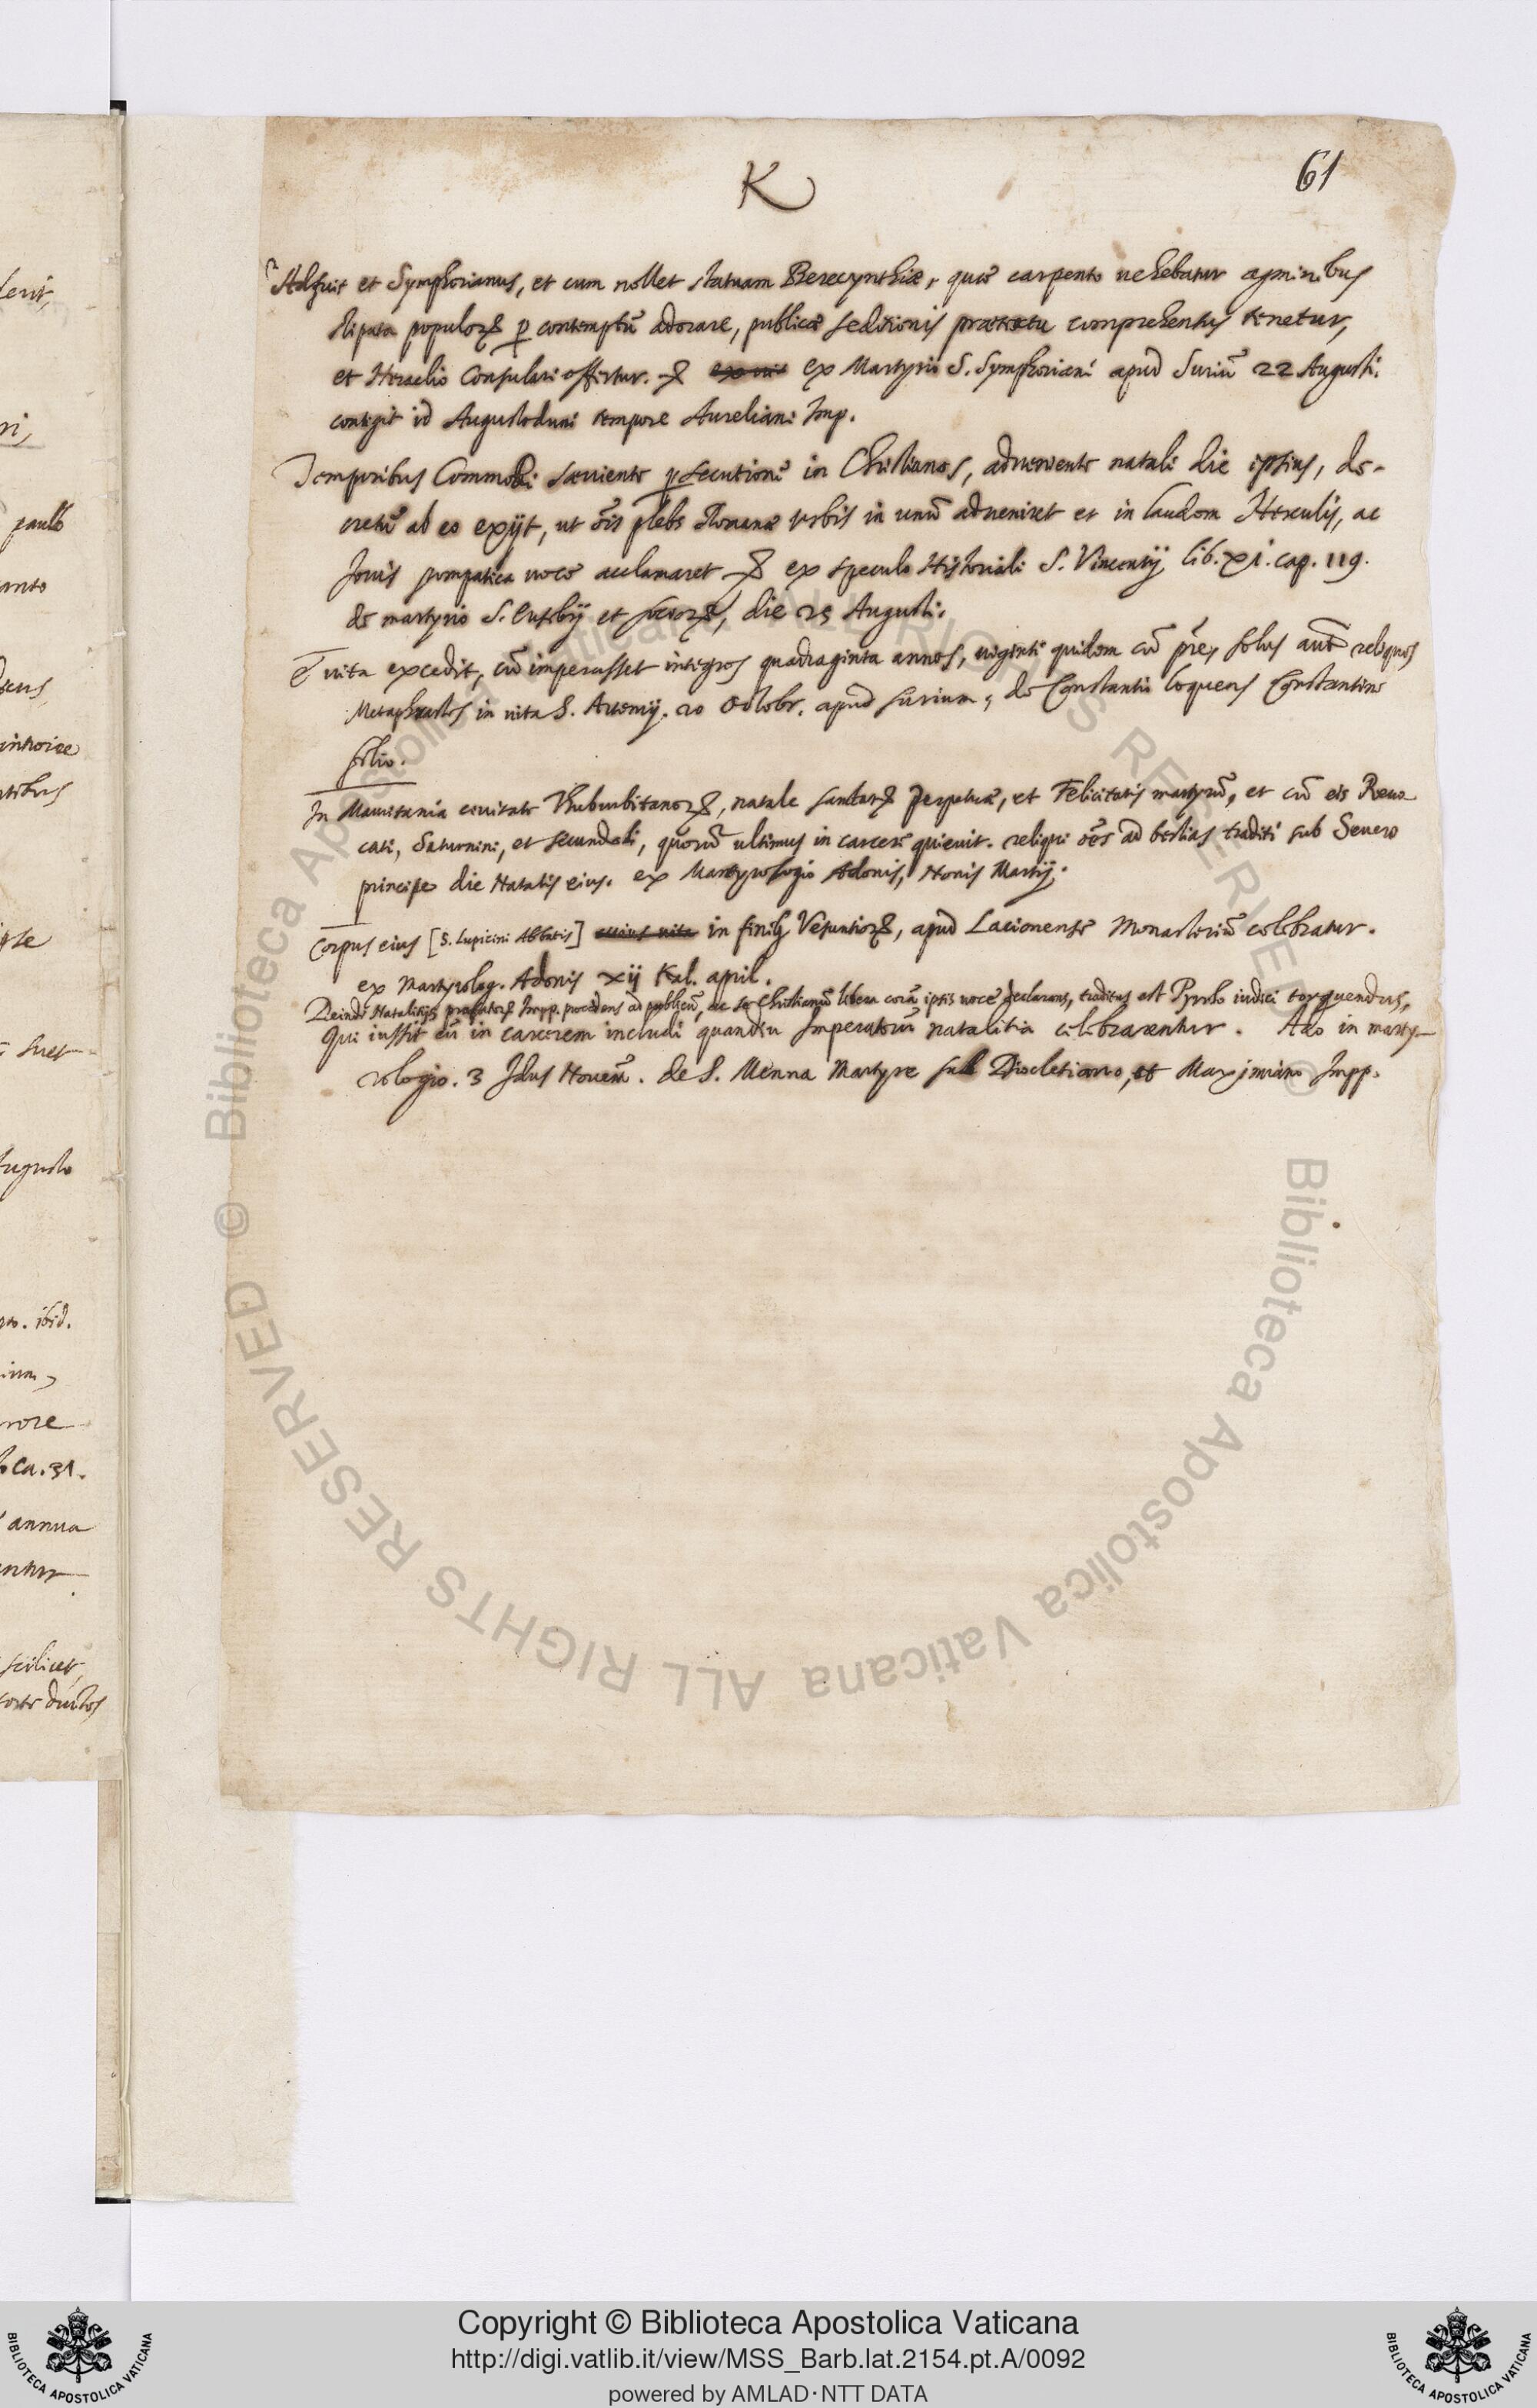 K
61
Adfuit et Symphorianus, et cum nollet statuam Berecynthiæ, quæ carpento uehebatur agminibus
stipata populorꝝ ꝑ contemptũ adorare, publicæ seditionis prætextu comprehensus tenetur,
et Heraclio Consulari offertur. ex Martyrio S. Symphoriani apud Suriũ 22 Augusti.
contigit id Augustoduni tempore Aureliani Imp.
Temporibus Commodi sæuiente ꝑsecutione in Christianos, adueniente natali die ipsius, de-
cretũ ab eo exijt, ut õis plebs Romanæ vrbis in unũ adueniret et in laudem Herculis, ac
Jouis pompatica uoce acclamaret ex speculo Historiali S. Vincentij lib. XI. cap. 119.
de martyrio S. Eusebij et sociorꝝ, die 25 Augusti.
E uita excedit, cũ imperasset integros quadraginta annos, uiginti quidem cũ p̃re, solus aut̃ reliquos
Metaphrastes in uita S. Artemij. 20 Octobr. apud Surium, de Constantio loquens Constantini
filio.
In Mauritania ciuitate Thuburbitanorꝝ, natale sanctarꝝ Perpetuæ, et Felicitatis martyrũ, et cũ eis Reuo
cati, Saturnini, et secundoli, quorũ ultimus in carcere quieuit. reliqui õẽs ad bestias traditi sub Seuero
principe die Natalis eius. ex Martyrologio Adonis, Nonis Martij.
Corpus eius [S. Lupicini Abbatis] in finibꝫ Vesuntiorꝝ, apud Lacionense Monasteriũ celebratur.
ex Martyrolog. Adonis XIJ Kal. april.
Deinde Natalitijs præfatorꝝ Impp. procedens ad publicũ, ac se Christianũ libera corã ipsis uoce declarans, traditus est Pyrrho iudici torquendus,
Qui iussit eũ in carcerem includi quandiu Imperatorũ natalitia celebrarentur. Ado in marty-
rologio. 3 Idus Nouẽm. de S. Menna Martyre sub Diocletiano, et Maximiano Impp.
paulo
scilicet
ibid.
annua
Copyright © Biblioteca Apostolica Vaticana
http://digi.vatlib.it/view/MSS_Barb.lat.2154.pt.A/0092
powered by AMLAD·NTT DATA
BIBLIOTECA APOSTOLICA VATICANA
BIBLIOTECA APOSTOLICA VATICANA
© Biblioteca Apostolica Vaticana ALL RIGHTS RESERVED
© Biblioteca Apostolica Vaticana ALL RIGHTS RESERVED